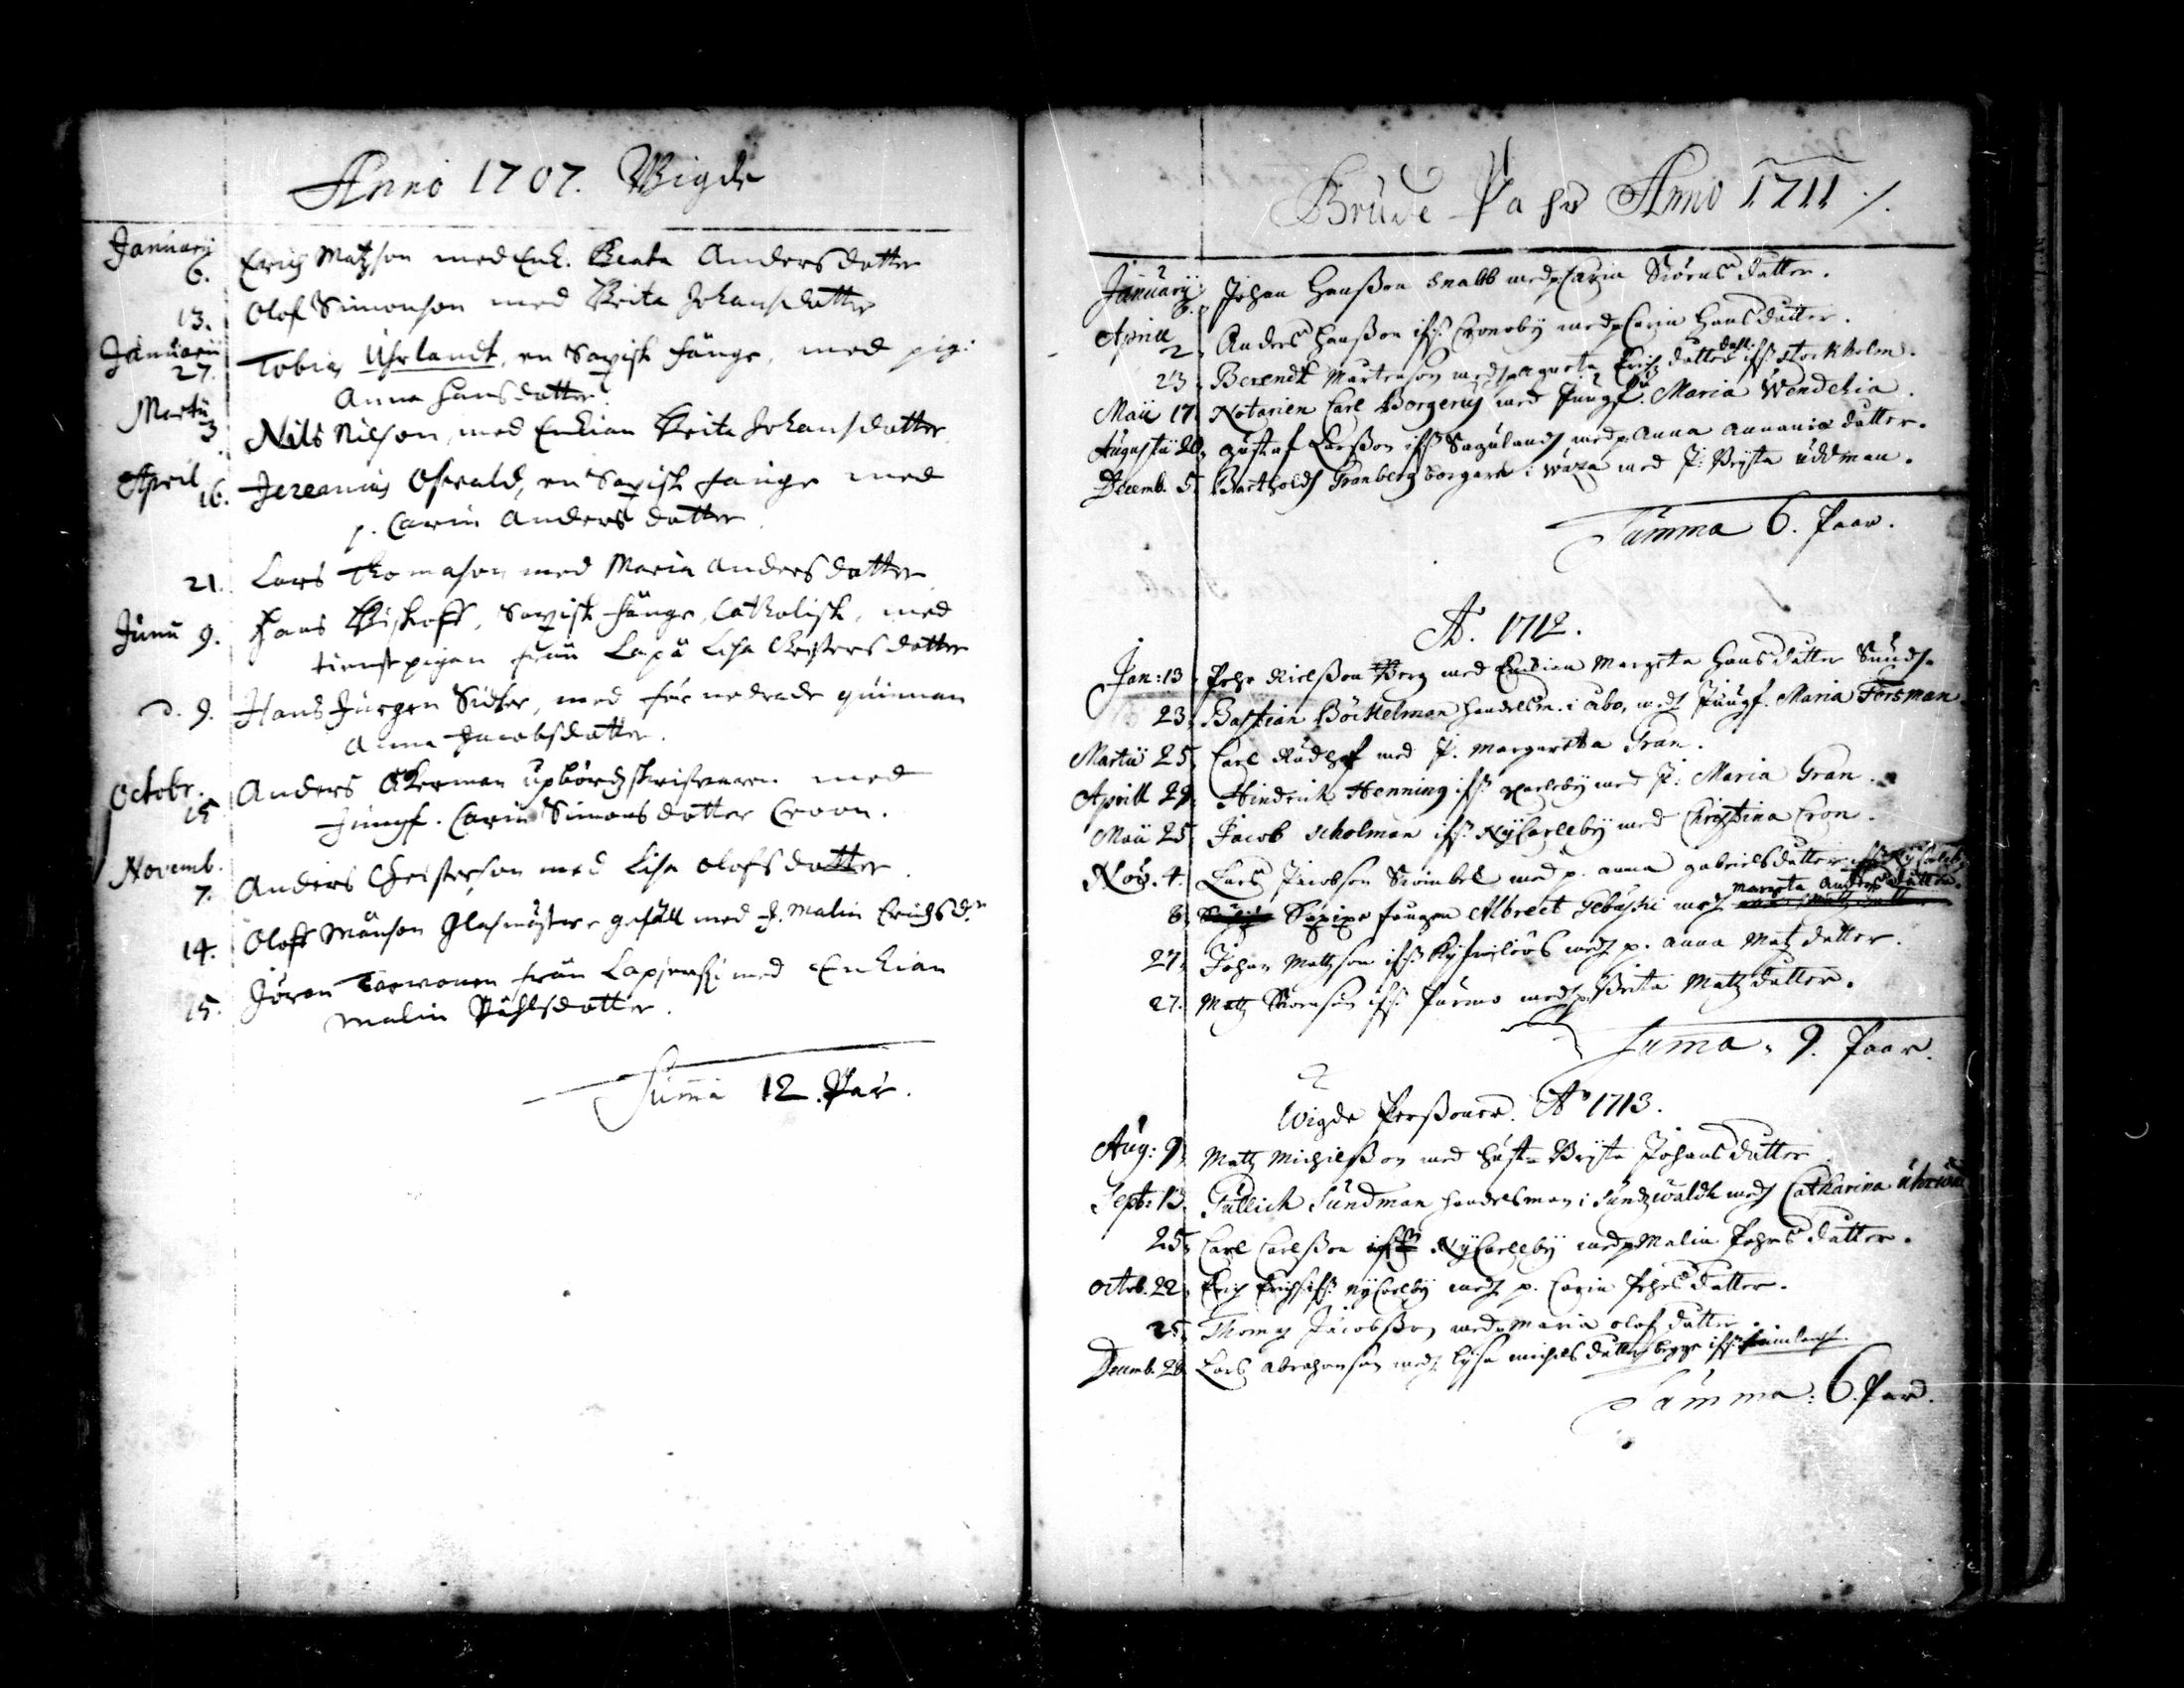 Anno 1707. Wigde
January 6. Erich Matzson med Enk. Beata Andersdotter
13. Olof Simonson med Brita Johansdotter
Januarii 27. Tobias Uhrlandt, en Saxisk fånge, med pig:
Anna Hansdotter.
Martii 3. Nils Nilson, med Enkian Brita Johansdotter
April 16. Jeremias Oswald, en Saxisk fånge med
p. Carin Anders dotter.
21. Lars Thomason med Maria Andersdotter
Junii 9. Hans Bishoff, Saxisk fånge, Catholisk, med
tienstpigan från Lapå Lisa Christersdotter
d. 9. Hans Jürgen Sidler, med quinnan
Anna Jacobsdotter.
Octobr. 15 Anders Åkerman upbördzskrifvaren med
Jungf. Carin Simonsdotter Croon.
Novemb. 7. Anders Christerson med Lisa Olofsdotter.
14. Oloff Månson Glasmästare gesäll med H. Malin Erichsd:r
15. Jöran Torvonen från Lapjerfz med Enkian
Malin Påhlsdotter.
Summa 12. Par.
Brude Pahr Anno 1711 /.
January: 6. Johan Hansson Snabb med p Carin Siörnsdutter.
Aprill 2. Anders Hansson ifr: Cronoby med p Carin Hansdutter.
23. Berendt Mårtenson med p Agneta Erichzdutter Dahl: ifr: Stockholm.
Maii 17. Notarien Carl Borgerus med Jungf:u Maria Wendelia.
Augustii 20. Gustaf Larsson ifr: med p. Anna Annaniædutter.
Decemb. 5. Barthold Granberg borgare i Waza med J: Brijta Uddman.
Summa 6. Paar.
A:o 1712.
Jan: 13. Pehr Nielsson Berg med Enkian Margeta Hansdutter Sunds
23. Bastian Böckelman handelsm. i Åbo, med Jungf. Maria Forsman.
Martii 25. Carl Rudhof med J. Margareta Gran.
Aprill 29. Hindrich Henning ifr: Carleby med J: Maria Gran.
Maii 25. Jacob Scholman ifr: NyCarleby med Christina Cron.
Nov. 4. Lars Jacobson med p. Anna Gabrielsdutter ifr: NyCarleby
8. Saxixe fången Albrect Gebaski med Margeta Andersdutter.
27. Johan Mattson ifr: med p. Anna Matzdutter.
27. Matz ifr: Purmo med p. Brita Matzdutter.
Summa. 9. Paar.
Wigde Perssoner. A:o 1713.
Aug: 9. Matz Michelsson med Brijta Johansdutter.
Septb: 13. Gütlich Sundman handelsman i Sundzwaldh med Catharina
25. Carl Carlsson ifr: NyCarleby med p Malin Pehrsdutter.
Octob. 22. Erich Erichs ifr: NyCarleby med p. Carin Pehrsdutter.
25. Thomas Jacobsson med p Maria Olofsdutter.
Decemb. 28. Lars Abrahamson med Lijsa Michelsdutter begge ifr:
Summa: 6. Par.